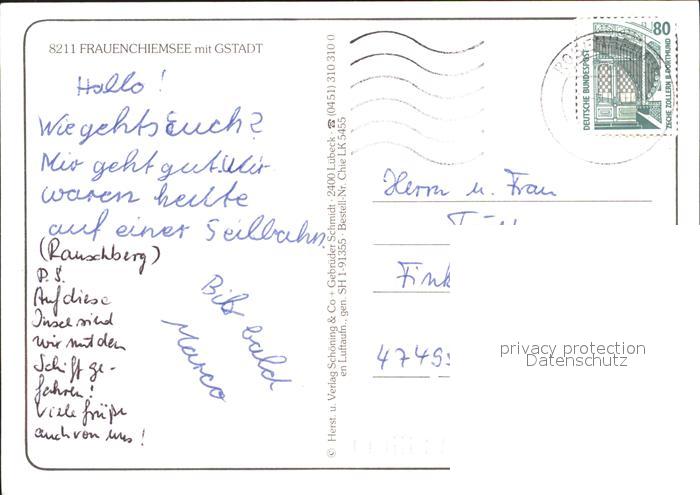 8211 FRAUENCHIEMSEE mit GSTADT
Hallo!
Wie gehts Euch?
Mir geht gut. Wir
waren heute
auf einer Seilbahn.
(Rauschberg)
P.S.
Auf diese
Insel sind
wir mit dem
Schiff ge-
fahren!
Viele Grüße
auch von uns!
Bis bald
Marco
© Herst. u. Verlag Schöning & Co + Gebrüder Schmidt · 2400 Lübeck · ☎ (0451) 310 310 0
en Luftaufn., gen. SH 1-91355 · Bestell-Nr. Chie LK 5455
80
DEUTSCHE BUNDESPOST
ZECHE ZOLLERN II · DORTMUND
Herrn u. Frau
Fink
4749
privacy protection
Datenschutz